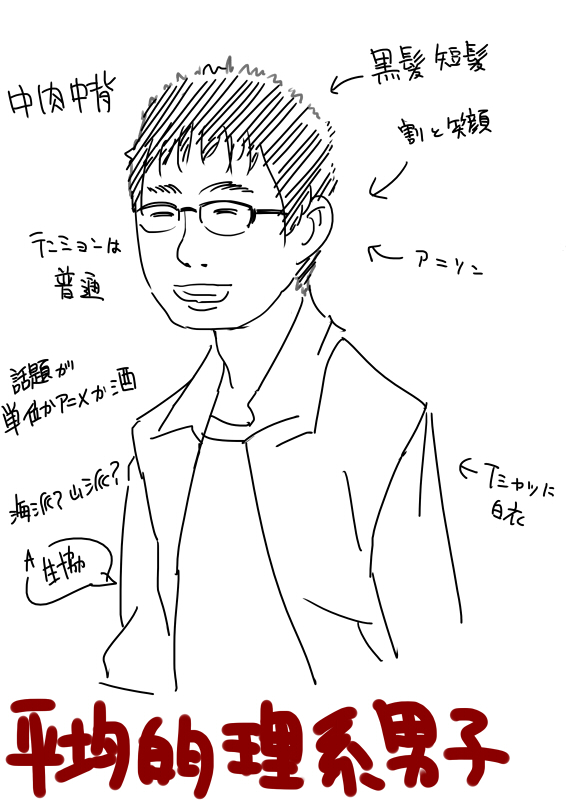 黒髪 短髪
中肉中背
割と笑顔
テンションは
普通
アニソン
話題が
単位かアニメか酒
Tシャツに
白衣
海派?山派?
A 生協
平均的理系男子